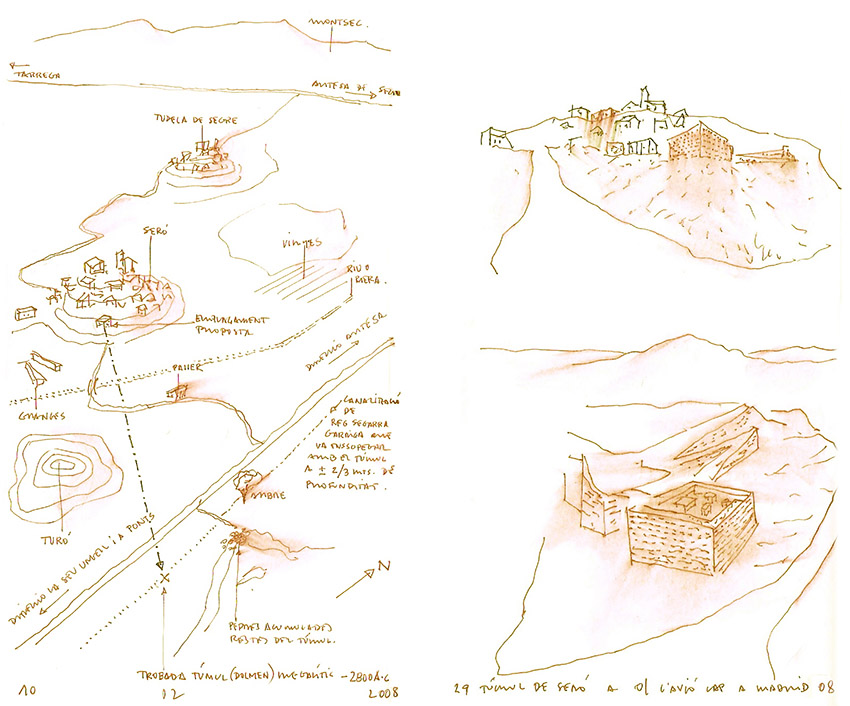 MONTSEC.
TARREGA
ARTESA DE SEGRE
TUDELA DE SEGRE
SERÓ
VINYES
RIU O
RIERA.
EMPLAÇAMENT
PROPOSTA
DIRECCIÓ ARTESA
PALLER
GRANGES
CANALITZACIÓ
DE
REG SEGARRA
GARRIGA AMB
VA ENSOPEGAR
AMB EL TÚMUL
A ± 2/3 MTS. DE
PROFUNDITAT.
ARBRE
TURÓ
DIRECCIÓ LA SEU URGELL I A PONTS
N
PEDRES ACUMULADES
RESTES DEL TÚMUL.
TROBADA TÚMUL (DOLMEN) MEGALÍTIC - 2800 A.C
10
02
2008
29 TÚMUL DE SERÓ A O/ L'AVIÓ CAP A MADRID 08